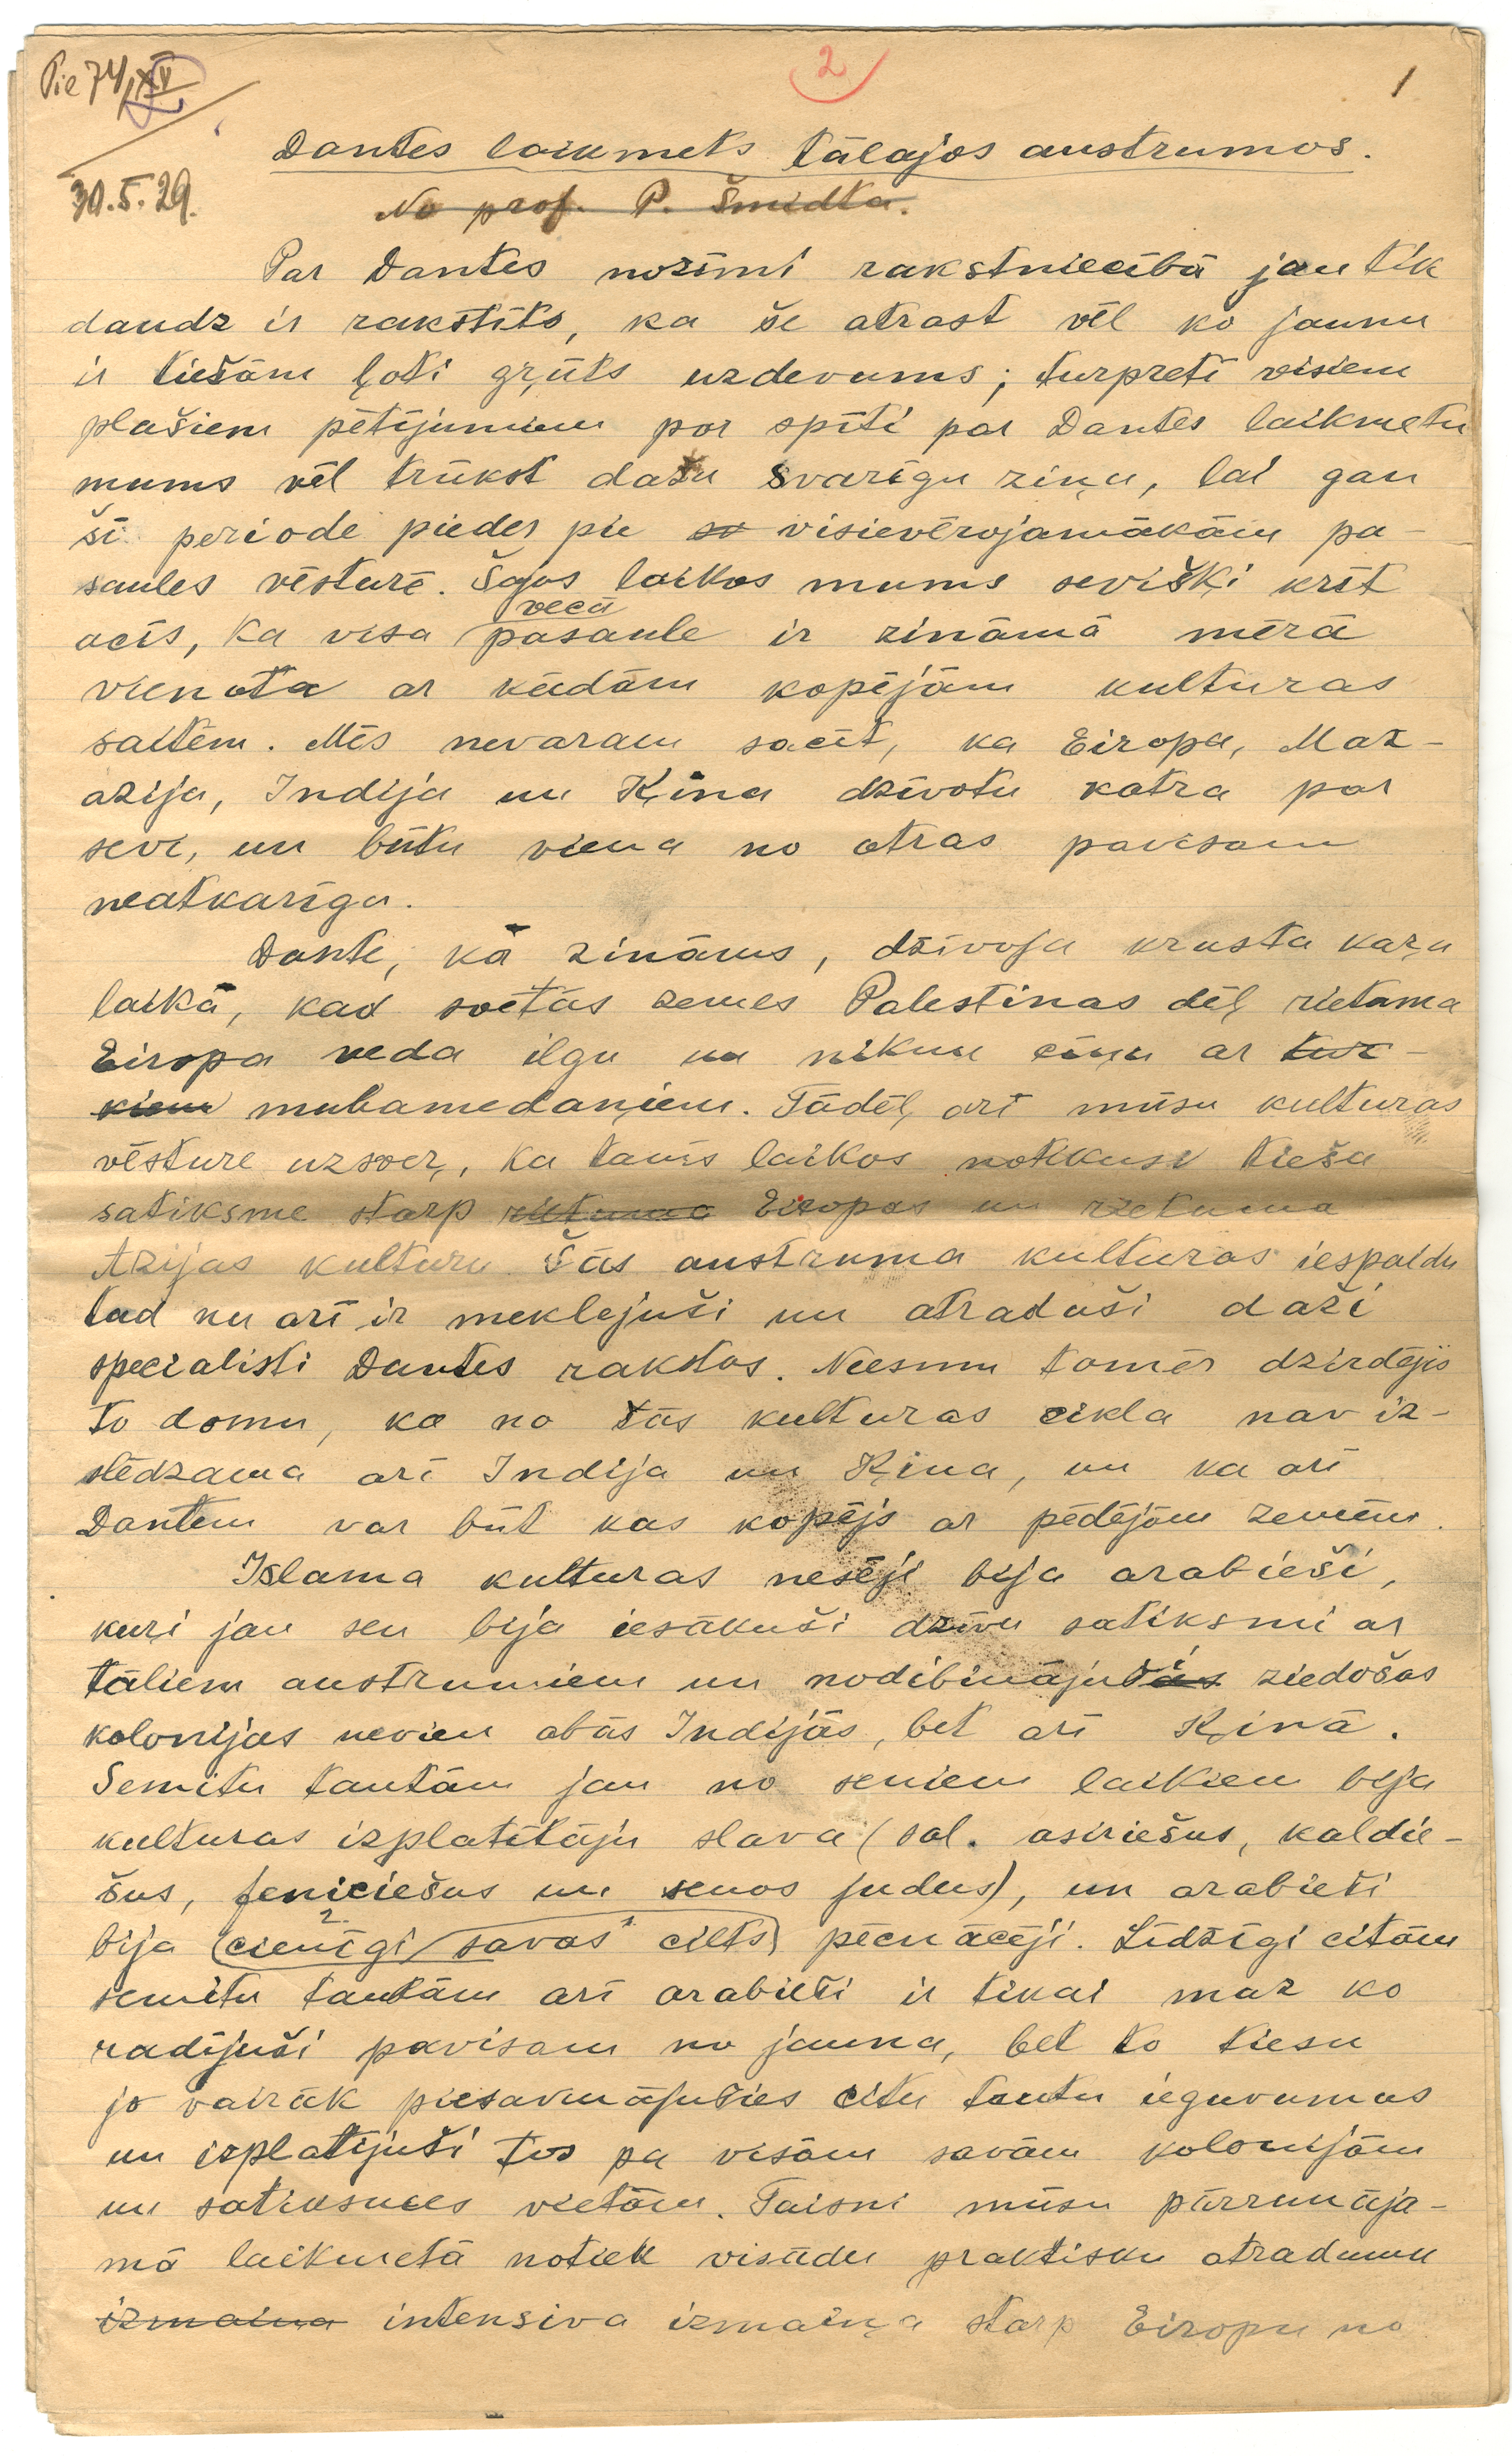 Pie 74/XV
2
1
30.5.29.
Dantes laikmets tālajos austrumos.
No prof. P. Šmidta.
Par Dantes nozīmi rakstniecībā jau tik
daudz ir rakstīts, ka še atrast vēl ko jaunu
ir tiešām ļoti grūts uzdevums; turpretī visiem
plašiem pētījumiem par spīti par Dantes laikmetu
mums vēl trūkst dažu svarīgu ziņu, lai gan
šī periode pieder pie so visievērojamākām pa-
saules vēsturē. Šajos laikos mums sevišķi krīt
vecā
acīs, ka visa pasaule ir zināmā mērā
vienota ar kādām kopējām kulturas
saitēm. Mēs nevaram sacīt, ka Eiropa, Maz-
azija, Indija un Ķina dzīvotu katra par
sevi, un būtu viena no otras pavisam
neatkarīga.
Dante, kā zināms, dzīvoja krusta kaŗa
laikā, kad svētās zemes Palestinas dēļ rietama
Eiropa veda ilgu un niknu cīņu ar tur-
kiem muhamedaņiem. Tādēļ arī mūsu kulturas
vēsture uzsver, ka tanīs laikos notikusi tieša
satiksme starp rietuma Eiropas un rietuma
Azijas kulturu. Šās austruma kulturas iespaidu
tad nu arī ir meklejuši un atraduši daži
specialisti Dantes rakstos. Neesmu tomēr dzirdējis
to domu, ka no šās kulturas cikla nav iz-
slēdzama arī Indija un Ķina, un ka arī
Dantem var būt kas kopējs ar pēdējām zemēm.
Islama kulturas nesēji bija arabieši,
kuŗi jau sen bija iesākuši dzīvu satiksmi ar
tāliem austrumiem un nodibinājušās ziedošas
kolonijas nevien abās Indijās, bet arī Ķinā.
Semitu tautām jau no seniem laikiem bija
kulturas izplatītāju slava (sal. asiriešus, kaldie-
šus, feniciešus un senos judus), un arabieši
2. 1.
bija cienīgi savas cilts pēcnācēji. Līdzīgi citām
semitu tautām arī arabieši ir tikai maz ko
radījuši pavisam no jauna, bet to tiesu
jo vairāk piesavinājušies citu tautu ieguvumus
un izplatījuši tos pa visām savām kolonijām
un satiksmes vietām. Taisni mūsu pārrunāja-
mā laikmetā notiek visādu praktisku atradumu
izmaiņa intensiva izmaiņa starp Eiropu no